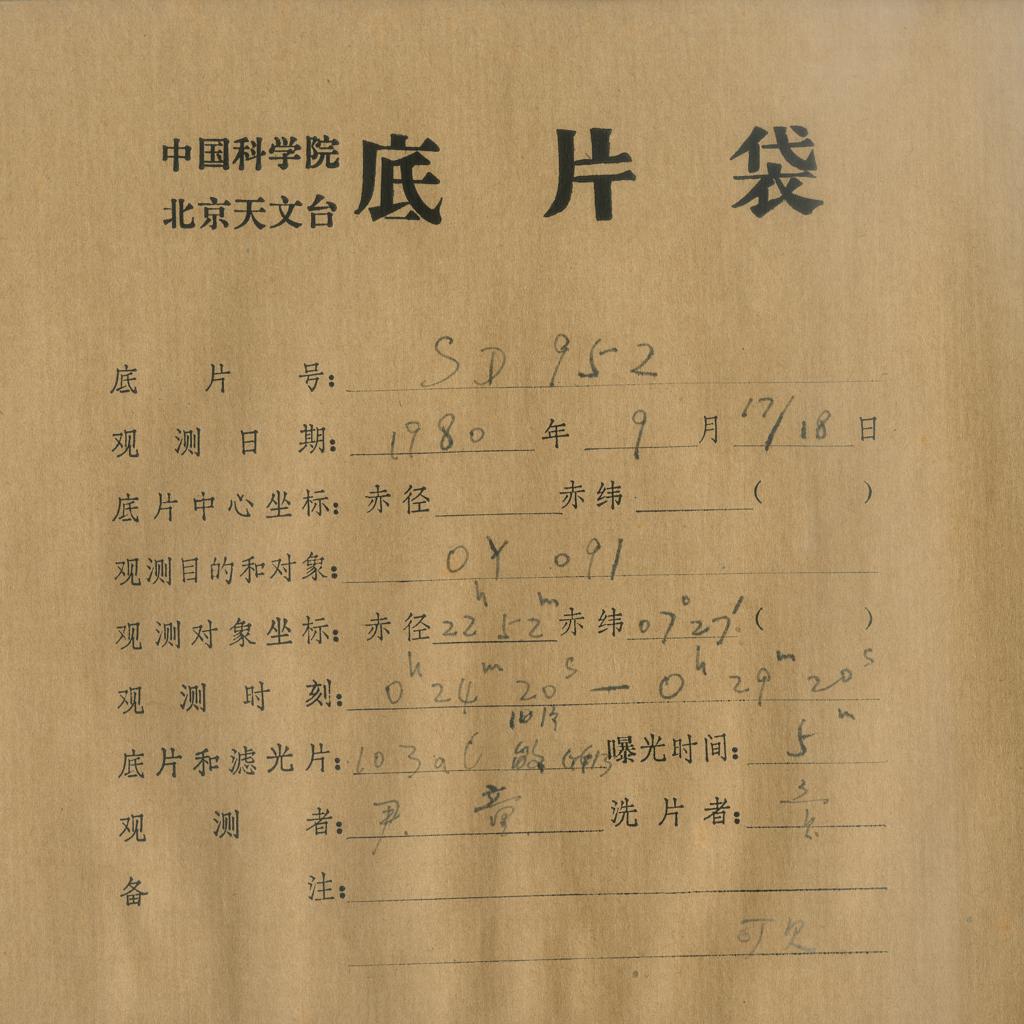 中国科学院
北京天文台
底片袋
底片号: SD 952
观测日期: 1980 年 9 月 17/18 日
底片中心坐标: 赤径 赤纬 ( )
观测目的和对象: OY 091
观测对象坐标: 赤径 22h 52m 赤纬 07°27′ ( )
观测时刻: 0h 24m 20s — 0h 29m 20s
底片和滤光片: 103a 敏 曝光时间: 5m
观测者: 尹 洗片者:
备注:
可见